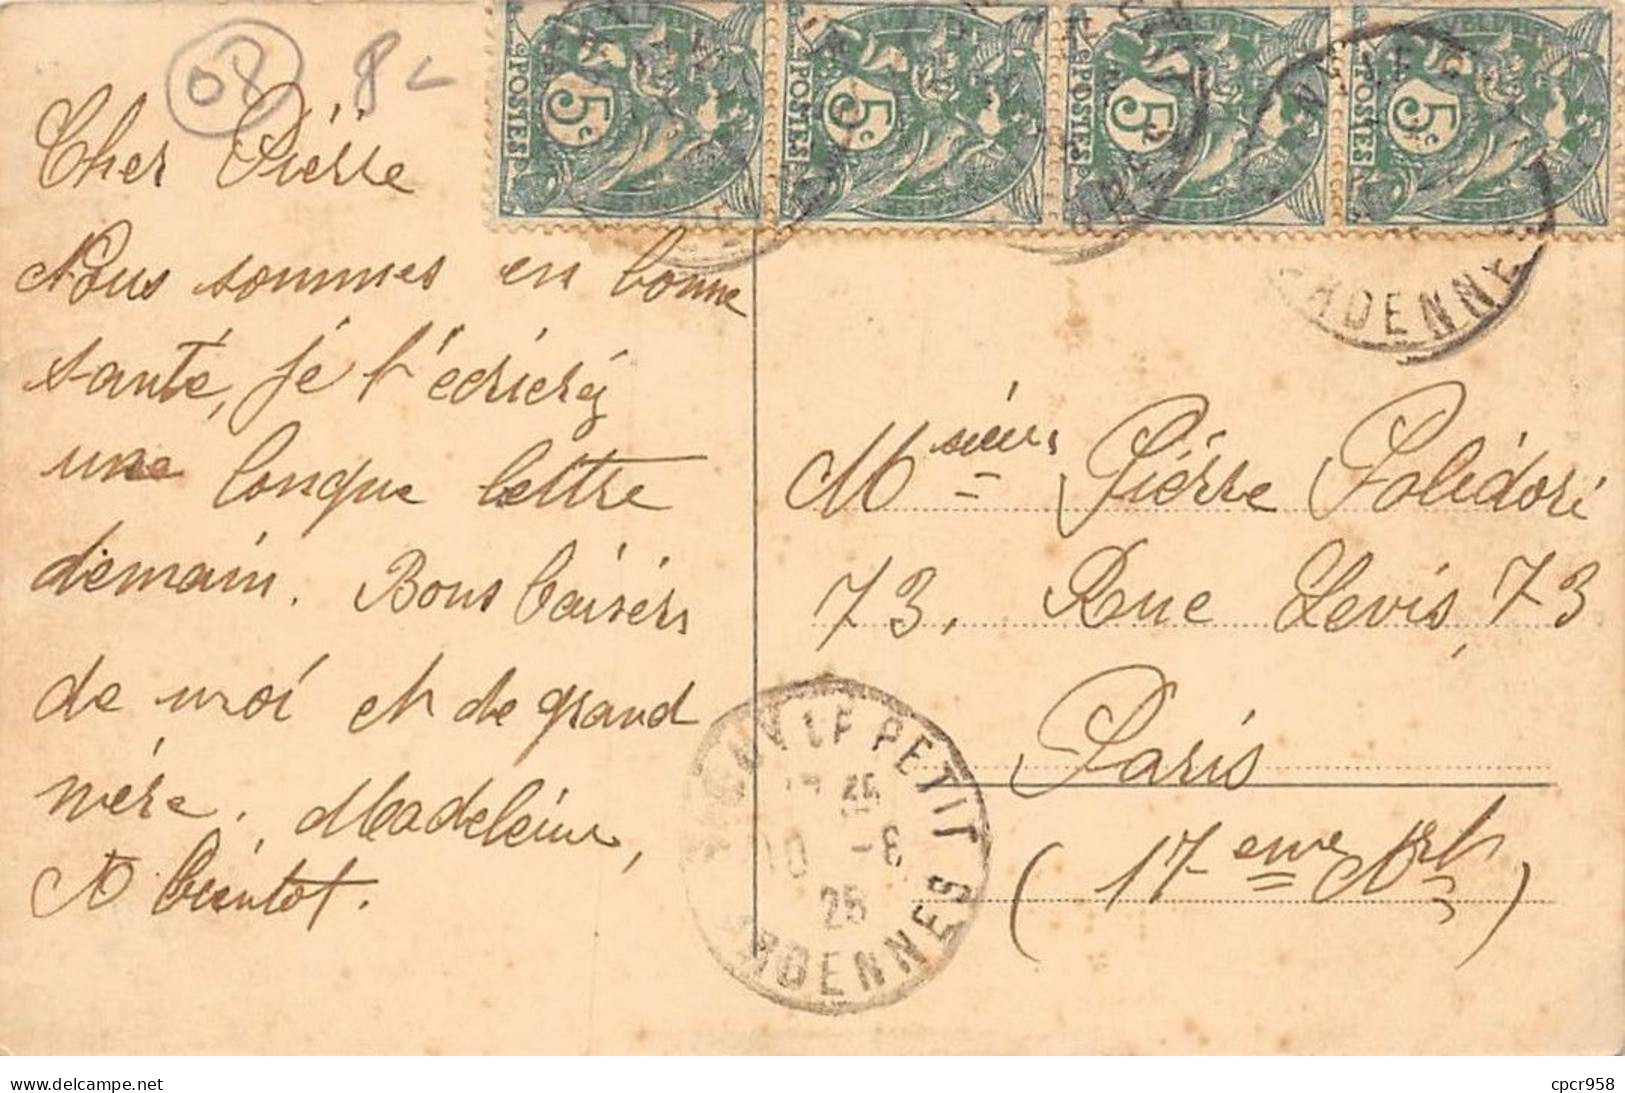 08 8
POSTES 5c POSTES 5c POSTES 5c POSTES 5c
Cher Pierre
Nous sommes en bonne
santé, je t'écrirai
une longue lettre
demain. Bons baisers
de moi et de grand
mère. Madeleine,
A bientot.
ARDENNES
Msieur Pierre Polidori
73, Rue Levis, 73
Paris
(17eme Arrt)
LE PETIT
10 -6
25
ARDENNES
delcampe.net
cpcr958